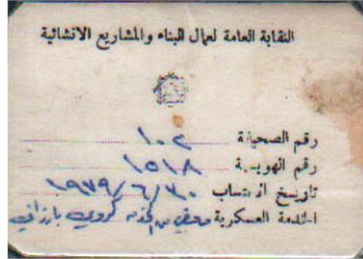 النقابة العامة لعمال البناء والمشاريع الانشائية
رقم الصحيفة ١٠٢
رقم الهوية ١٥١٨
تاريخ الانتساب ١٩٧٩/٦/٣٠
الخدمة العسكرية معفي من الخدمه كردي بارزاني